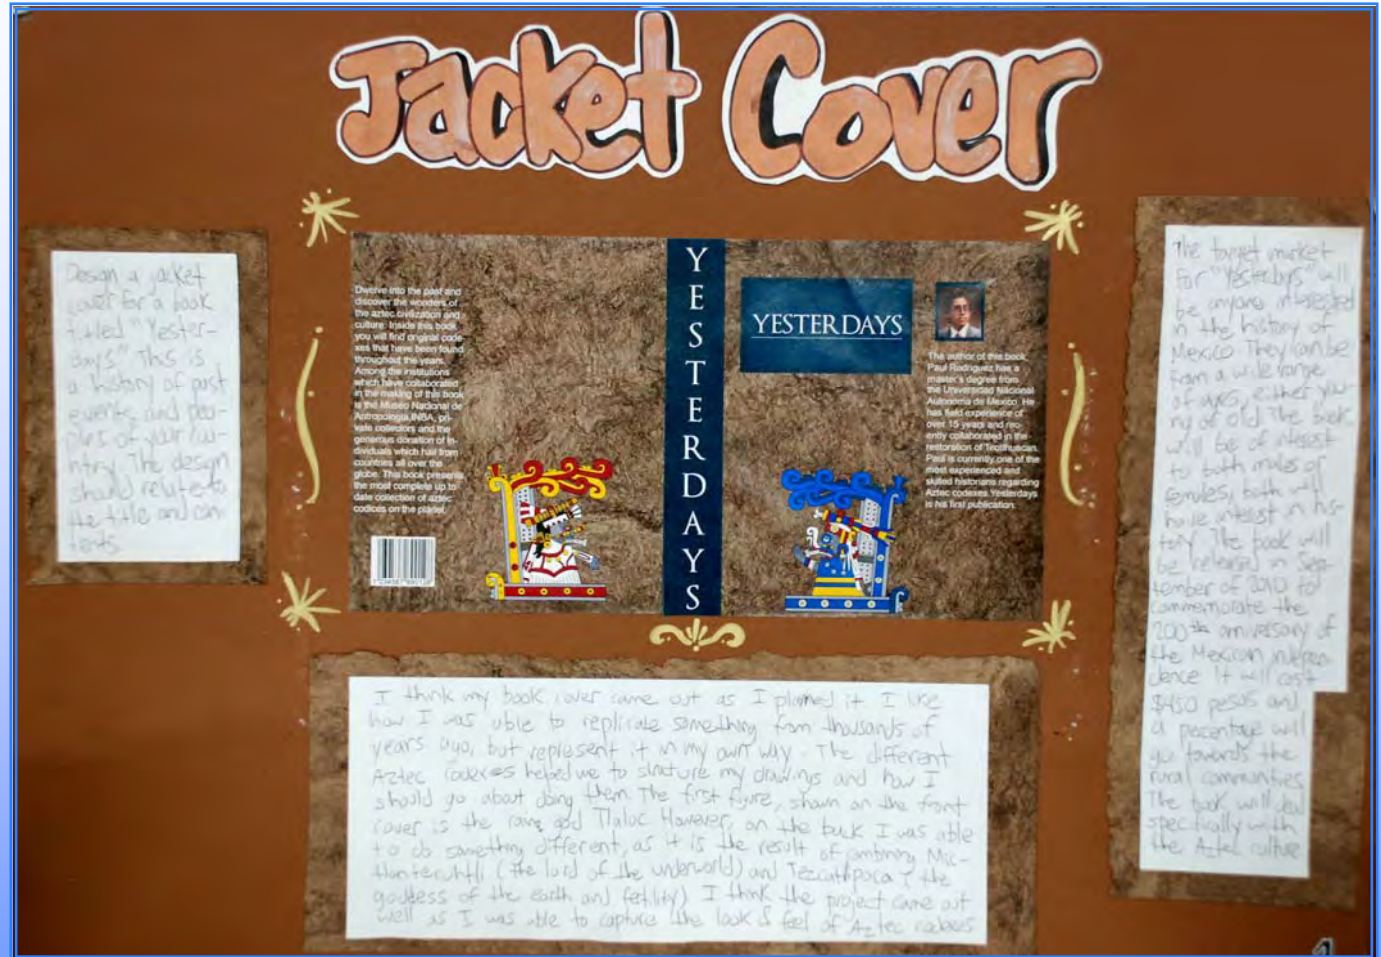 Jacket Cover
Design a jacket
cover for a book
titled "Yester-
days" This is
a history of past
events and peo-
ples of your cou-
ntry. The design
should relate to
the title and con-
tents
Dwelve into the past and
discover the wonders of
the aztec civilization and
culture. Inside this book
you will find original code
xes that have been found
throughout the years.
Among the institutions
which have collaborated
in the making of this book
is the Museo Nacional de
Antropologia INBA, pri-
vate collectors and the
generous donation of in-
dividuals which hail from
countries all over the
globe. This book presents
the most complete up to
date collection of aztec
codices on the planet.
YESTERDAYS
YESTERDAYS
The author of this book,
Paul Rodriguez has a
master's degree from
the Universidad Nacional
Autonoma de Mexico. He
has field experience of
over 15 years and rec-
ently collaborated in the
restoration of Teotihuacan.
Paul is currently one of the
most experienced and
skilled historians regarding
Aztec codexes. Yesterdays
is his first publication.
The target market
for "Yesterdays" will
be anyone interested
in the history of
Mexico. They can be
from a wide range
of ages, either you-
ng or old. The book
will be of interest
to both males or
females, both will
have interest in his-
tory. The book will
be released in Sep-
tember of 2010 to
commemorate the
200th anniversary of
the Mexican indepen-
dence It will cost
$450 pesos and
a percentage will
go towards the
rural communities.
The book will deal
specifically with
the Aztec culture
I think my book cover came out as I planned it. I like
how I was able to replicate something from thousands of
years ago, but represent it in my own way. The different
Aztec codexes helped me to structure my drawings and how I
should go about doing them. The first figure, shown on the front
cover is the rain god Tlaloc However, on the back I was able
to do something different, as it is the result of combining Mic-
tlantecuhtli (the lord of the underworld) and Tezcatlipoca (the
goddess of the earth and fertility) I think the project came out
well as I was able to capture the look & feel of Aztec codexes